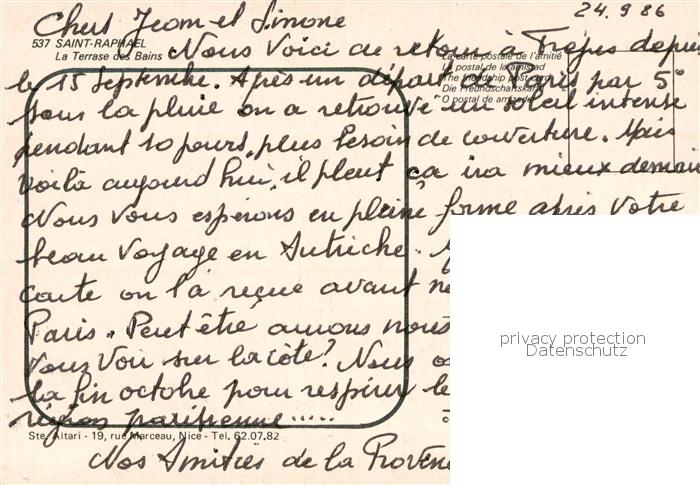 24.9.86
Chers Jean et Simone
537 SAINT-RAPHAEL
La Terrase des Bains
La carte postale de l'amitié
La postal de la amistad
The friendship post card
Die Freundschaftskarte
O postal de amizade
Nous voici de retour à Fréjus depuis
le 15 Septembre. Après un départ de Paris par 5°
sous la pluie on a retrouvé un soleil intense
pendant 10 jours, plus besoin de couverture. Mais
voilà aujourd'hui, il pleut ça ira mieux demain
Nous vous espérons en pleine forme après votre
beau voyage en Autriche.
carte on l'a reçue avant
Paris. Peut être aurons nous
vous voir sur la côte? Nous
la fin octobre pour respirer le
région parisienne.....
Ste. Altari - 19, rue Marceau, Nice - Tel. 62.07.82
Nos Amitiés de la Proven
privacy protection
Datenschutz